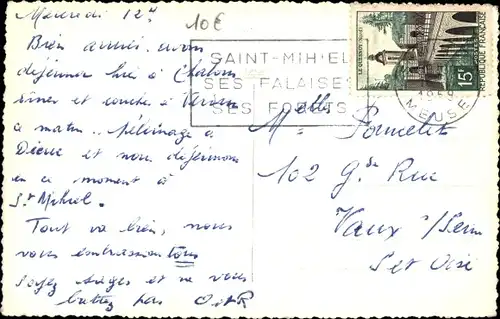 Mercredi 12
10€
Bien arrivés, avons
déjeuner hier à Chalons
dîner et couché à Verdun
ce matin.. pélerinage à
Dieue et nous déjeunons
en ce moment à
St Mihiel.
Tout va bien, nous
vous embrassons tous
soyez sages et ne vous
battez pas
SAINT-MIHIEL
SES FALAISES
SES FORETS
LE QUESNOY
15F
REPUBLIQUE FRANÇAISE
MEUSE
Melle
102 Gde Rue
Vaux s/Seine
Set Oise